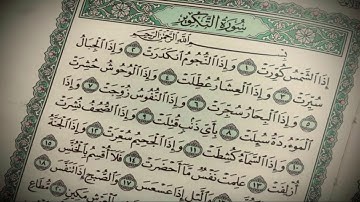 سُورَةُ التَّكْوِيرِ
بِسْمِ اللَّهِ الرَّحْمَٰنِ الرَّحِيمِ
إِذَا الشَّمْسُ كُوِّرَتْ ١ وَإِذَا النُّجُومُ انْكَدَرَتْ ٢ وَإِذَا الْجِبَالُ
سُيِّرَتْ ٣ وَإِذَا الْعِشَارُ عُطِّلَتْ ٤ وَإِذَا الْوُحُوشُ حُشِرَتْ
٥ وَإِذَا الْبِحَارُ سُجِّرَتْ ٦ وَإِذَا النُّفُوسُ زُوِّجَتْ ٧ وَإِذَا
الْمَوْءُودَةُ سُئِلَتْ ٨ بِأَيِّ ذَنْبٍ قُتِلَتْ ٩ وَإِذَا الصُّحُفُ نُشِرَتْ
١٠ وَإِذَا السَّمَاءُ كُشِطَتْ ١١ وَإِذَا الْجَحِيمُ سُعِّرَتْ ١٢ وَإِذَا الْجَنَّةُ
أُزْلِفَتْ ١٣ عَلِمَتْ نَفْسٌ مَا أَحْضَرَتْ ١٤ فَلَا أُقْسِمُ بِالْخُنَّسِ
١٥ وَاللَّيْلِ إِذَا عَسْعَسَ ١٧ وَالصُّبْحِ إِذَا تَنَفَّسَ ١٨
مَكِينٍ ٢٠ مُطَاعٍ